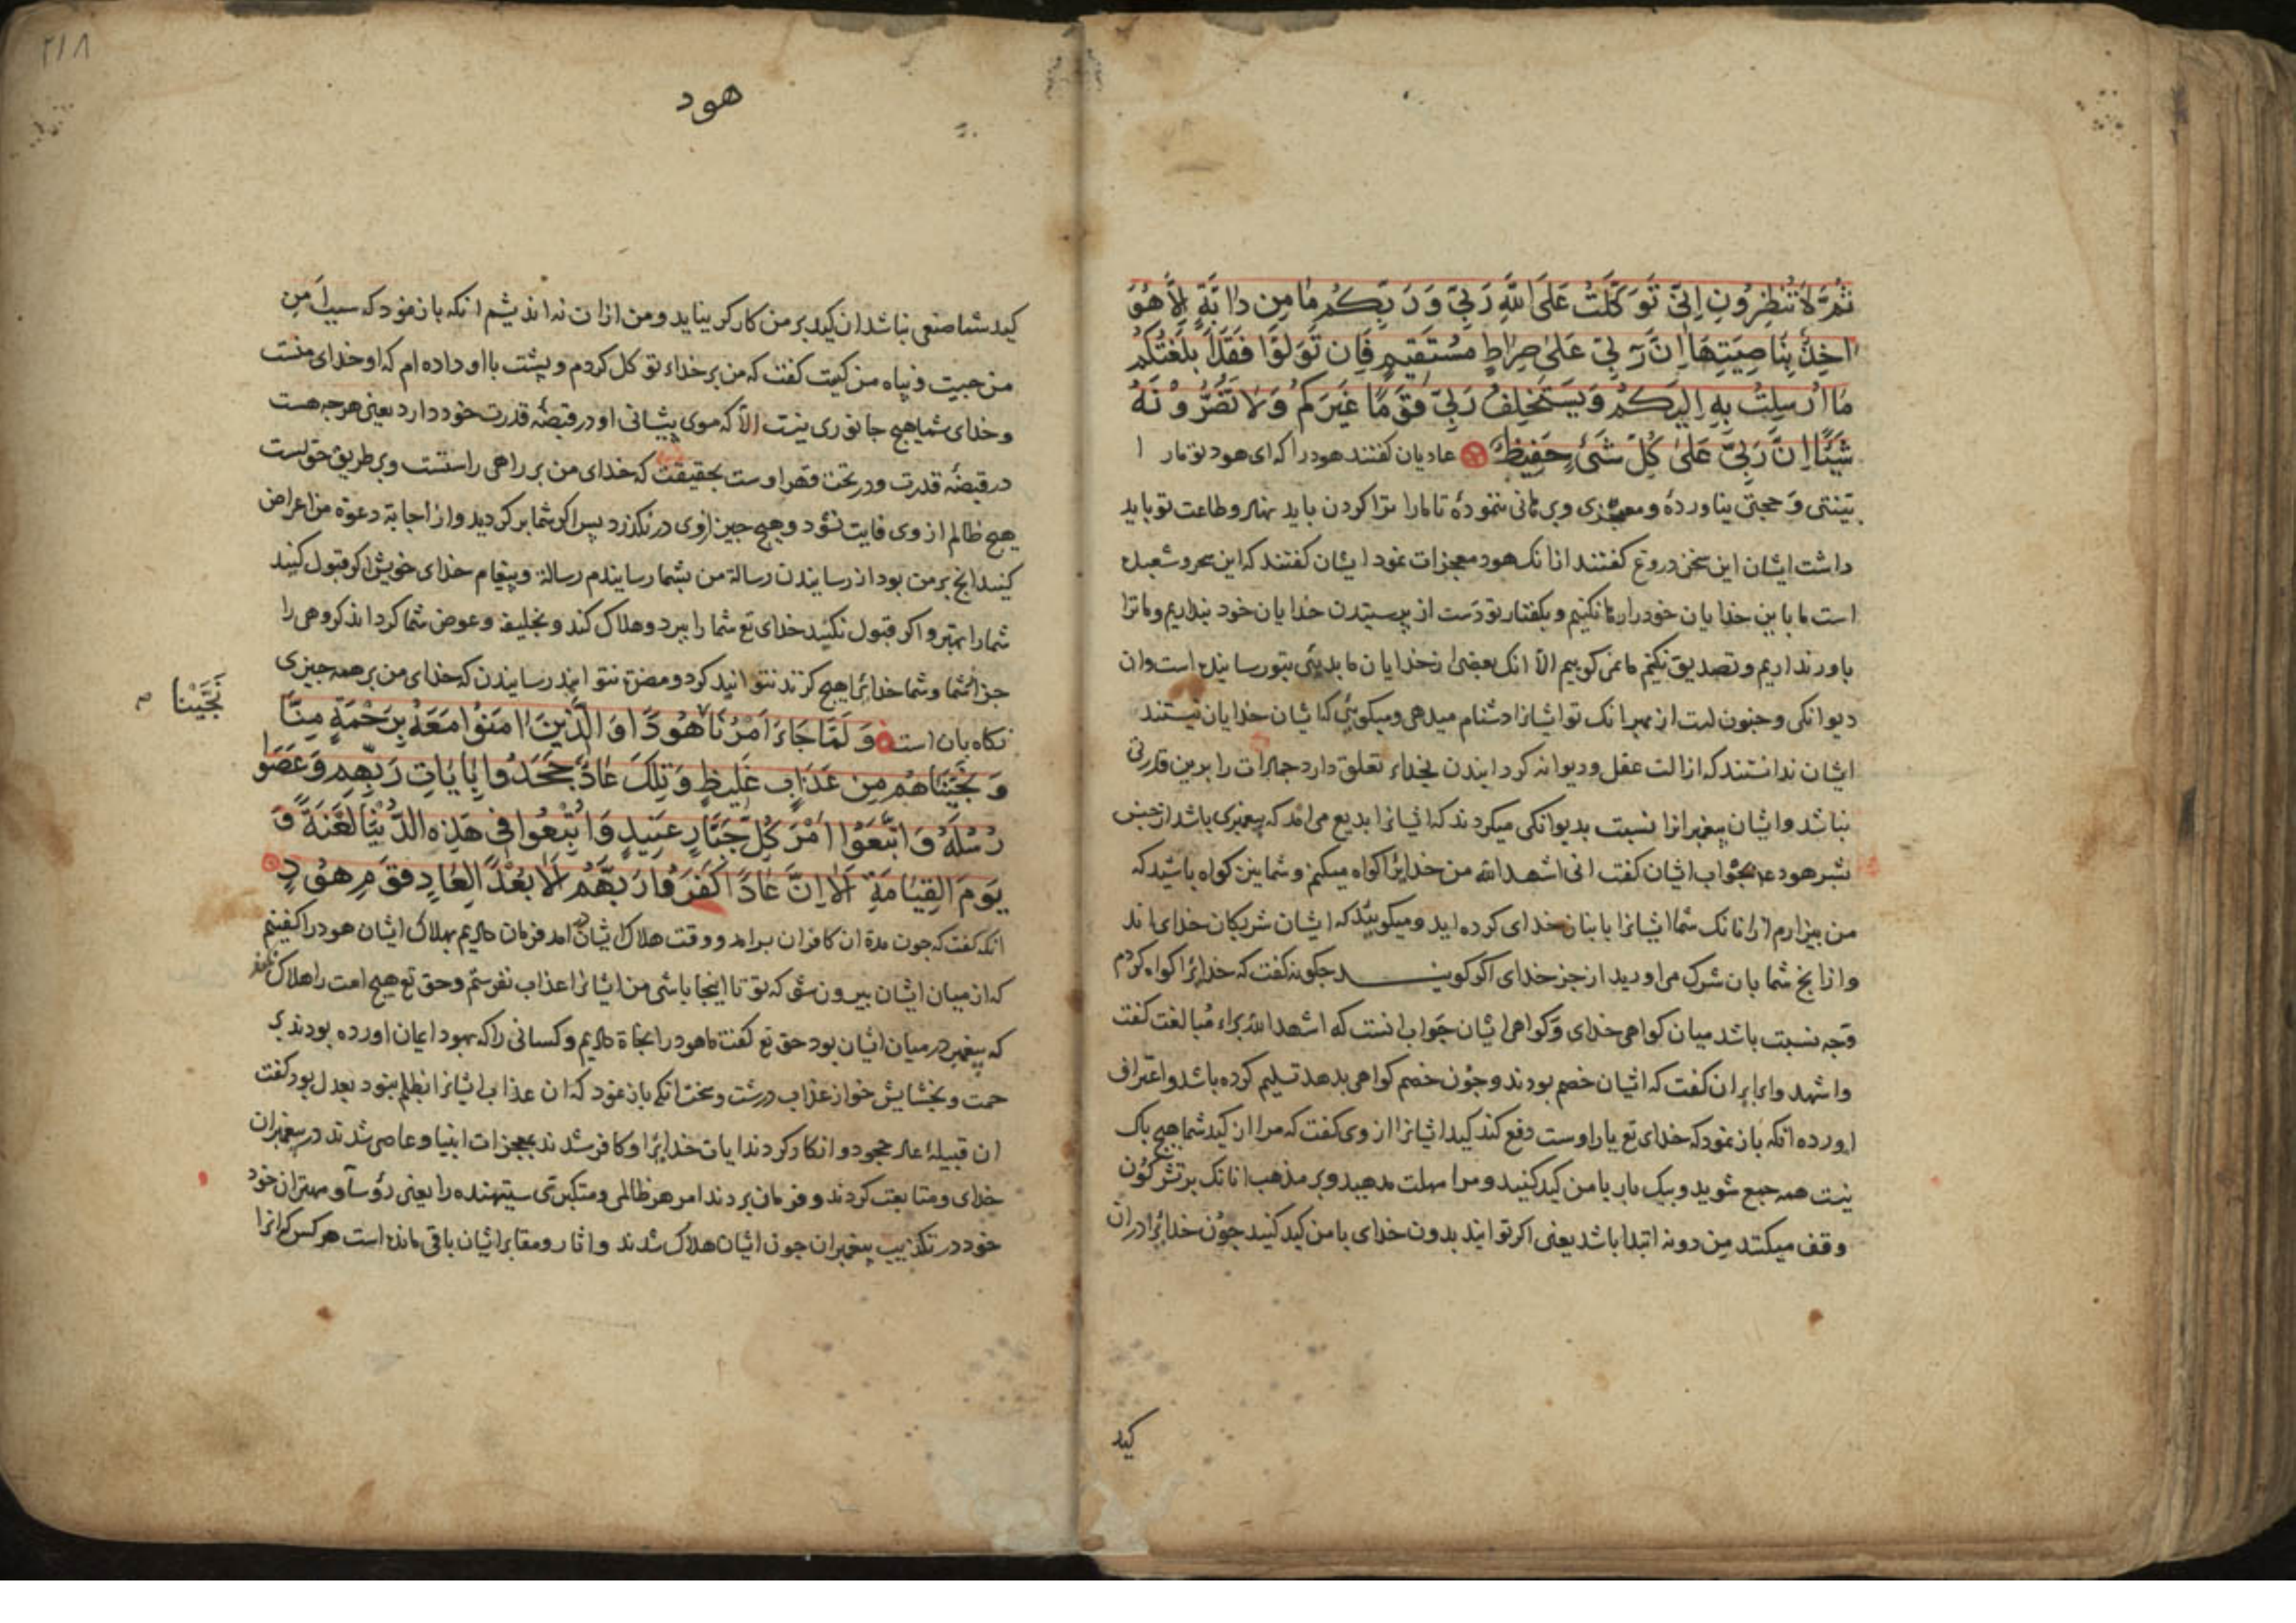 ثُمَّ لَا تُنْظِرُونِ اِنِّي تَوَكَّلْتُ عَلَى اللّٰهِ رَبِّي وَ رَبِّكُمْ مَا مِنْ دَابَّةٍ اِلَّا هُوَ
اٰخِذٌ بِنَاصِيَتِهَا اِنَّ رَبِّي عَلٰى صِرَاطٍ مُسْتَقِيمٍ فَاِنْ تَوَلَّوْا فَقَدْ اَبْلَغْتُكُمْ
مَا اُرْسِلْتُ بِهِ اِلَيْكُمْ وَيَسْتَخْلِفُ رَبِّي قَوْمًا غَيْرَكُمْ وَلَا تَضُرُّونَهُ
شَيْئًا اِنَّ رَبِّي عَلٰى كُلِّ شَیْءٍ حَفِيظٌ عادیان کفتند هود را که ای هود تو مار ا
بیّنتی وَ حجتی نیاورده و معجزی و برهانی ننموده تا مارا ترا کردن باید نهاد و طاعت تو باید
داشت ایشان این سخن دروغ کفتند انانک هود معجزات نمود ایشان کفتند که این سحر و شعبده
است ما باین خدایان خود را رها نکنیم و بکفتار تو دست از پرستیدن خدایان خود بنداریم و ما ترا
باور نداریم و تصدیق نکنیم ما نمی کوییم الا انک بعضی از خدایان ما بدیئی بتو رسانیده است و ان
دیوانکی و جنون است از بهر انک تو ایشانرا دشنام میدهی و میکویی که ایشان خدایان نیستند
ایشان ندانستند که ازالت عقل و دیوانه کردانیدن بخداء تعلق دارد جمادات را برین قدرتی
نباشد و ایشان پیغمبرانرا نسبت بدیوانکی میکردند که ایشانرا بدیع می امد که پیغمبری باشد از جنس
بشر هود بجواب ایشان کفت انی اشهد الله من خدایرا کواه میکنم و شما نیز کواه باشید که
من بیزارم ازانانک شما ایشانرا بانبازن خدای کرده اید و میکویید که ایشان شریکان خدای اند
و ازانج شما بان شرک می اورید از جز خدای اکر کویند چکونه کفت که خدایرا کواه کردم
وَجه نسبت باشد میان کواهی خدای وَ کواهی ایشان جَواب انست که اشهد الله براء مُبالغت کفت
و اشهدوا برای ان کفت که ایشان خصم بودند و چُون خصم کواهی بدهد تسلیم کرده باشد و اعتراف
اورده انکه باز نمود که خدای تع یار اوست دفع کند کید ایشانرا از وی کفت که مرا از کید شما هیچ باک
نیست همه جمع شوید و بیک بار با من کید کنید و مرا مهلت مدهید و بر مذهب انانک بر تشرکُون
وقف میکنند مِن دونه ابتدا باشد یعنی اکر توانید بدون خدای با من کید کنید چُون خدایرا دران
کید
هود
کید شما صنعی نباشد ان کید بر من کارکر نیاید و من ازان نه اندیشم انکه باز نمود که سیدِ من
من چیست و پناه من کیست کفت که من بر خداء توکل کردم و پشت بااو داده ام که او خدای منست
و خدای شما هیچ جانوری نیست الّا که موی پیشانی او در قبضهٔ قدرت خود دارد یعنی هر چه هست
در قبضهٔ قدرت و در تحت قهر اوست بحقیقت که خدای من بر راهی راستست و بر طریق حق است
هیچ ظالم از وی فایت نشود و هیچ چیز ازوی در نکذرد پس اکر شما بر کردید و از اجابة دعوة من اعراض
کنید انج بر من بود از رسانیدن رسالة من بشما رسانیدم رسالة و پیغام خدای خویش اکر قبول کنید
شما را بهتر و اکر قبول نکنید خدای تع شما را ببرد و هلاک کند و بخلیفه و عوض شما کرداند کروهی را
جز از شما و شما خدایرا هیچ کزند نتوانید کرد و مضرة نتوانید رسانیدن که خدای من بر همه چیزی
نکاه بان است وَ لَمَّا جَاءَ اَمْرُنَا هُودًا وَ الَّذِينَ اٰمَنُوا مَعَهُ بِرَحْمَةٍ مِنَّا
نَجَّيْنَا
وَ نَجَّيْنَاهُمْ مِنْ عَذَابٍ غَلِيظٍ وَ تِلْكَ عَادٌ جَحَدُوا بِاٰيَاتِ رَبِّهِمْ وَ عَصَوْا
رُسُلَهُ وَ اتَّبَعُوا اَمْرَ كُلِّ جَبَّارٍ عَنِيدٍ وَ اُتْبِعُوا فِي هٰذِهِ الدُّنْيَا لَعْنَةً وَ
يَوْمَ الْقِيَامَةِ اَلَا اِنَّ عَادًا كَفَرُوا رَبَّهُمْ اَلَا بُعْدًا لِعَادٍ قَوْمِ هُودٍ
انکه کفت که چون مدة ان کافران برامد و وقت هلاک ایشان در امد فرمان دادیم بهلاک ایشان هود را کفتیم
که از میان ایشان بیرون شو که تو تا اینجا باشی من ایشانرا عذاب نفرستم و حق تع هیچ امت را هلاک
که پیغمبر در میان ایشان بود حق تع کفت ما هود را نجاة دادیم و کسانی را که بهود ایمان اورده بودند بر
حمت و بخشایش خود از عذاب درشت و سخت انکه باز نمود که ان عذاب ایشانرا بظلم نبود بعدل بود کفت
ان قبیلهٔ عاد جحود و انکار کردند ایات خدایرا و کافر شدند بمعجزات انبیا و عاصی شدند در پیغمبران
خدای و متابعت کردند و فرمان بردند امر هر ظالمی و متکبری ستیهنده را یعنی رؤسا و مهتران خود
خود در تکذیب پیغمبران چون ایشان هلاک شدند و اثار و مقابر ایشان باقی مانده است هر کس که انرا
۲۱۸